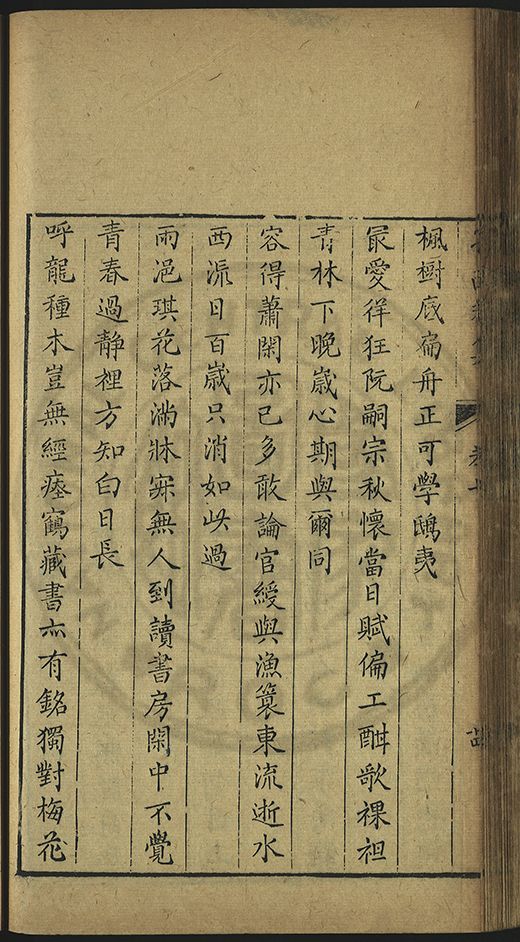 楓樹底扁舟正可學鴟夷
最愛徉狂阮嗣宗秋懷當日賦偏工酣歌裸袒
青林下晚歲心期與爾同
容得蕭閑亦已多敢論官綬與漁簑東流逝水
西㳂日百歲只消如此過
雨浥琪花落滿牀寂無人到讀書房閑中不覺
青春過靜裡方知白日長
呼龍種木豈無經瘞鶴藏書亦有銘獨對梅花